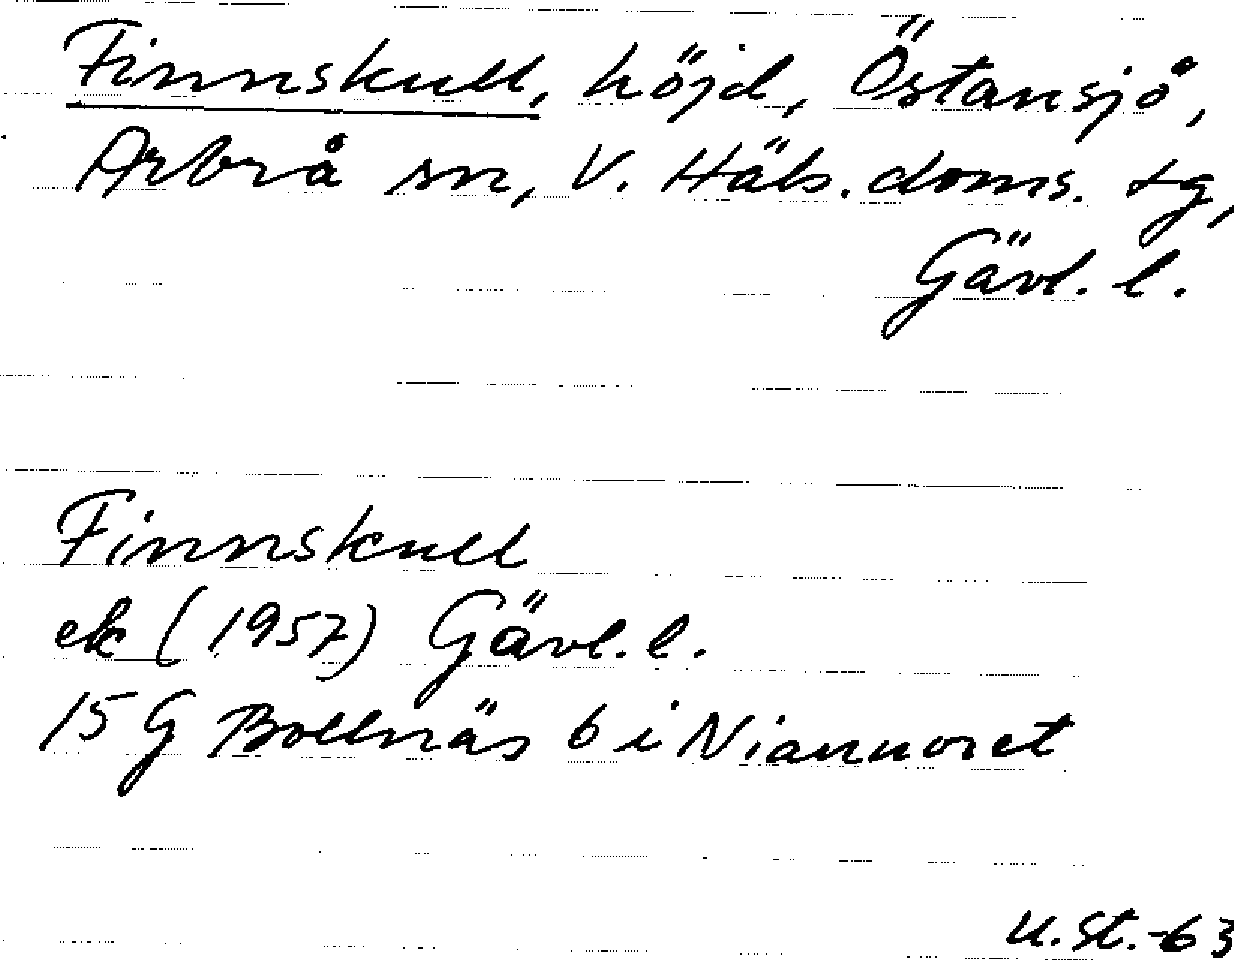 Finnskull, höjd, Östansjö,
Arbrå sn, V. Häls. doms. tg,
Gävl. l.
Finnskull
ek (1957) Gävl. l.
15 G Bollnäs 6 i Niannoret
U.St.-63